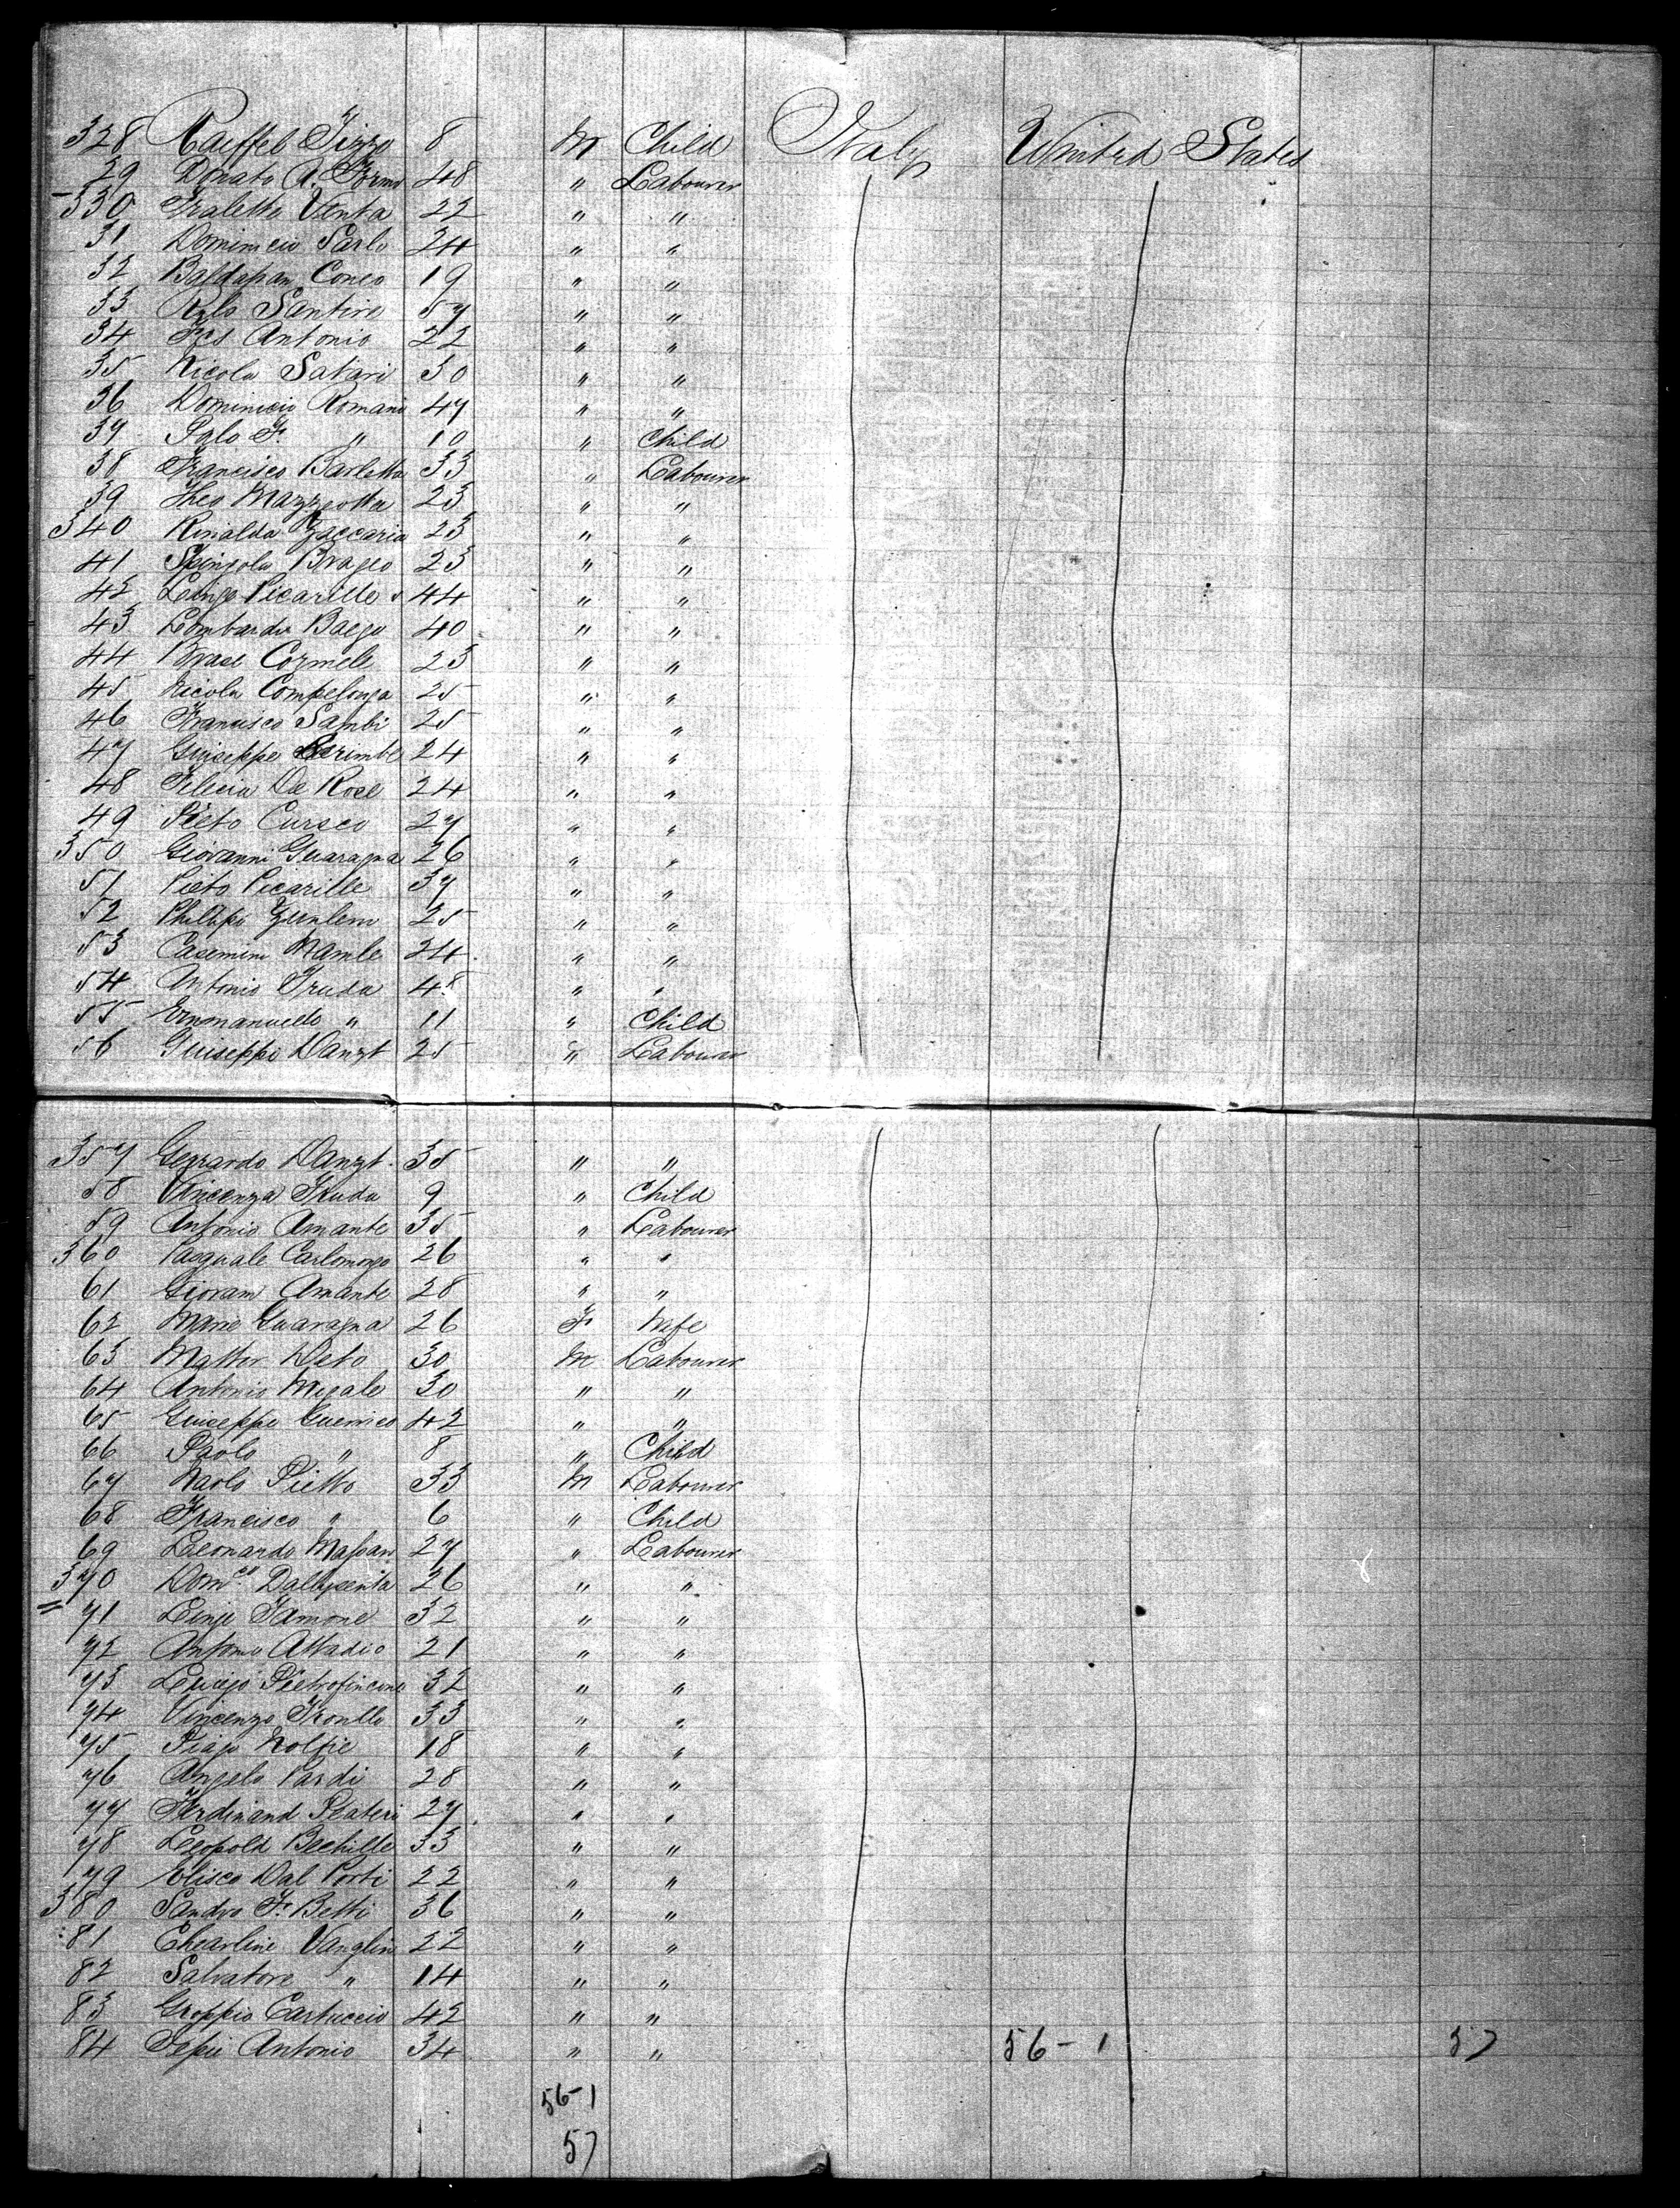 328 Raiffel Tizzo 8 M Child Italy United States
29 Donato A. Formo 48 " Labourer
330 Fralette Venta 22 " "
31 Dominicio Sarlo 24 " "
32 Conco 19 " "
33 Santire 57 " "
34 Frs Antonio 22 " "
35 Nicola Satari 30 " "
36 Dominicio Romani 47 " "
37 Palo F. " 10 " Child
38 Francisco Barletta 33 " Labourer
39 Theo Mazziotta 23 " "
340 Rinalda Zaccaria 23 " "
41 Spingola Brageo 23 " "
42 Luigo Picarille 44 " "
43 Lombardo Baego 40 " "
44 Brase Cormele 23 " "
45 Nicola Compelonga 25 " "
46 Francisco Santi 25 " "
47 Guiseppe 24 " "
48 Felicia De Rose 24 " "
49 Pieto Cursco 27 " "
350 Giovanni Guaragna 26 " "
51 Pieto Picarille 37 " "
52 Phillipi 25 " "
53 Casemini Mamle 24 " "
54 Antonio Truda 48 " "
55 Emmanuello " 11 " Child
56 Guiseppi Danzt 25 " Labourer
357 Gerrardo Danzt 35 " "
58 Vincenza Truda 9 " Child
59 Antonio Amante 35 " Labourer
360 Pasquale Carlomongo 26 " "
61 Giovam Amante 28 " "
62 Marie Guaragna 26 F Wife
63 Matteo Deto 30 M Labourer
64 Antonio Migale 30 " "
65 Guiseppe Guerrico 42 " "
66 Paolo " 8 " Child
67 Paolo Pietto 33 M Labourer
68 Francisco " 6 " Child
69 Leonardo Massaro 27 " Labourer
370 Domco. 26 " "
71 Luigi Tamone 32 " "
72 Antonio Attadio 21 " "
73 Luigo Pietrofincone 32 " "
74 Vincenzo Tronllo 33 " "
75 Piajo Nolfie 18 " "
76 Angelo Pardi 28 " "
77 Ferdinand Plateri 27 " "
78 Leopold Bechille 33 " "
79 Elisco Dal Porti 22 " "
380 Sandro F. Betti 36 " "
81 Chearline Vanglin 22 " "
82 Salvatore " 14 " "
83 Groppio Cartuccio 42 " "
84 Antonio 34 " " 56-1 57
56-1
57